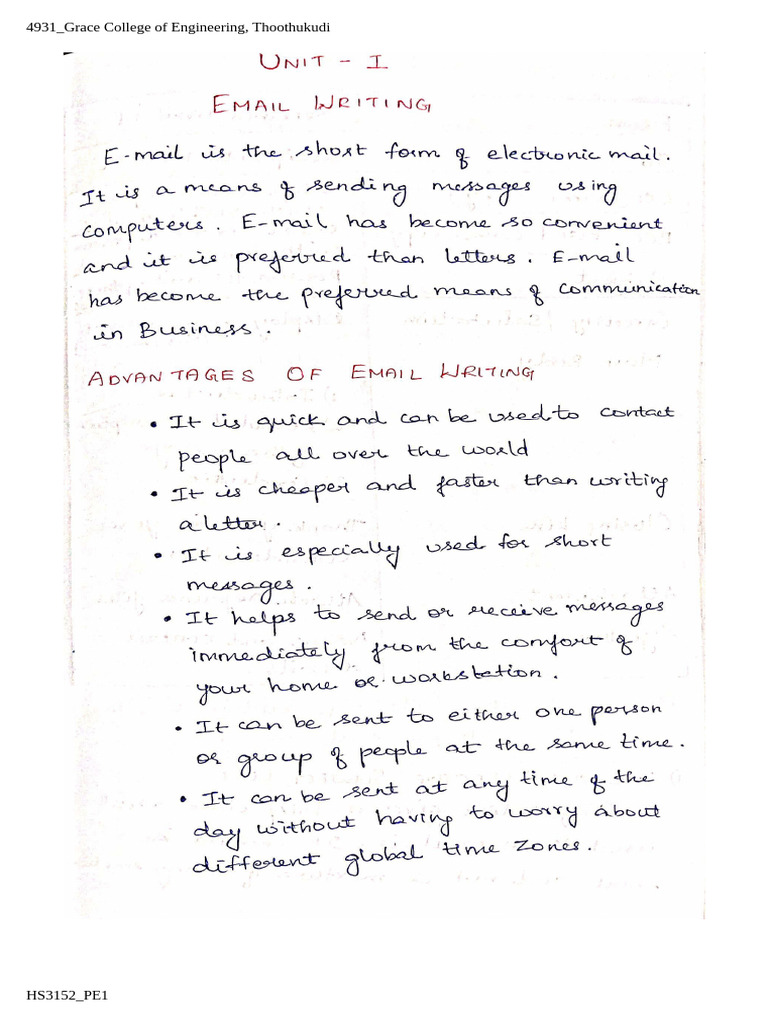 4931_Grace College of Engineering, Thoothukudi
UNIT - I
EMAIL WRITING
E-mail is the short form of electronic mail.
It is a means of sending messages using
computers. E-mail has become so convenient
and it is preferred than letters. E-mail
has become the preferred means of communication
in Business.
ADVANTAGES OF EMAIL WRITING
• It is quick and can be used to contact
people all over the world
• It is cheaper and faster than writing
a letter.
• It is especially used for short
messages.
• It helps to send or receive messages
immediately from the comfort of
your home or workstation.
• It can be sent to either one person
or group of people at the same time.
• It can be sent at any time of the
day without having to worry about
different global time zones.
HS3152_PE1